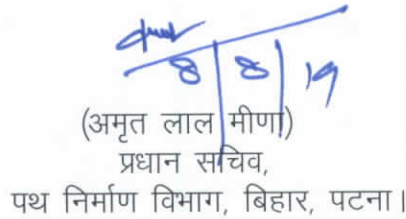 8/8/19
(अमृत लाल मीणा)
प्रधान सचिव,
पथ निर्माण विभाग, बिहार, पटना।